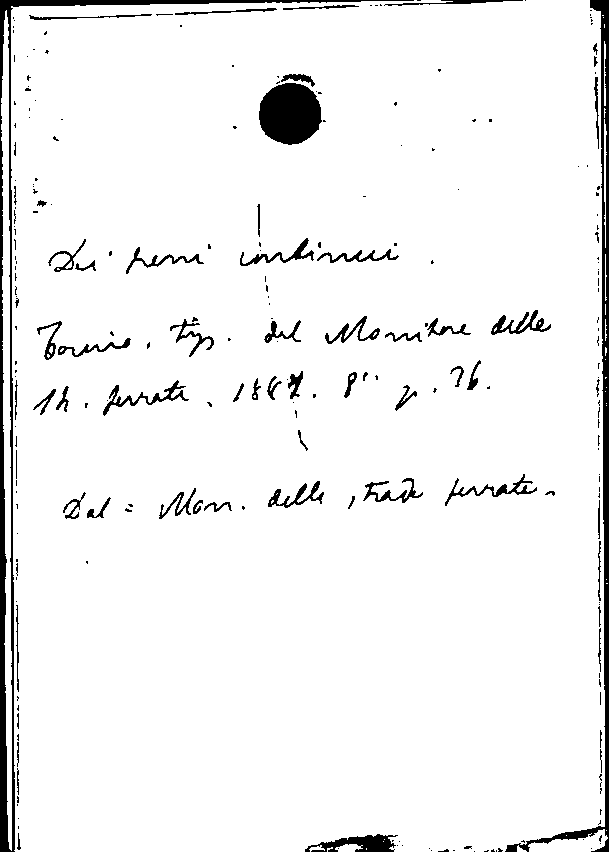 Dei freni continui.
Torino. tip. del Monitore delle
St. ferrate. 1887. 8° p. 76.
Dal = Mon. delle strade ferrate.